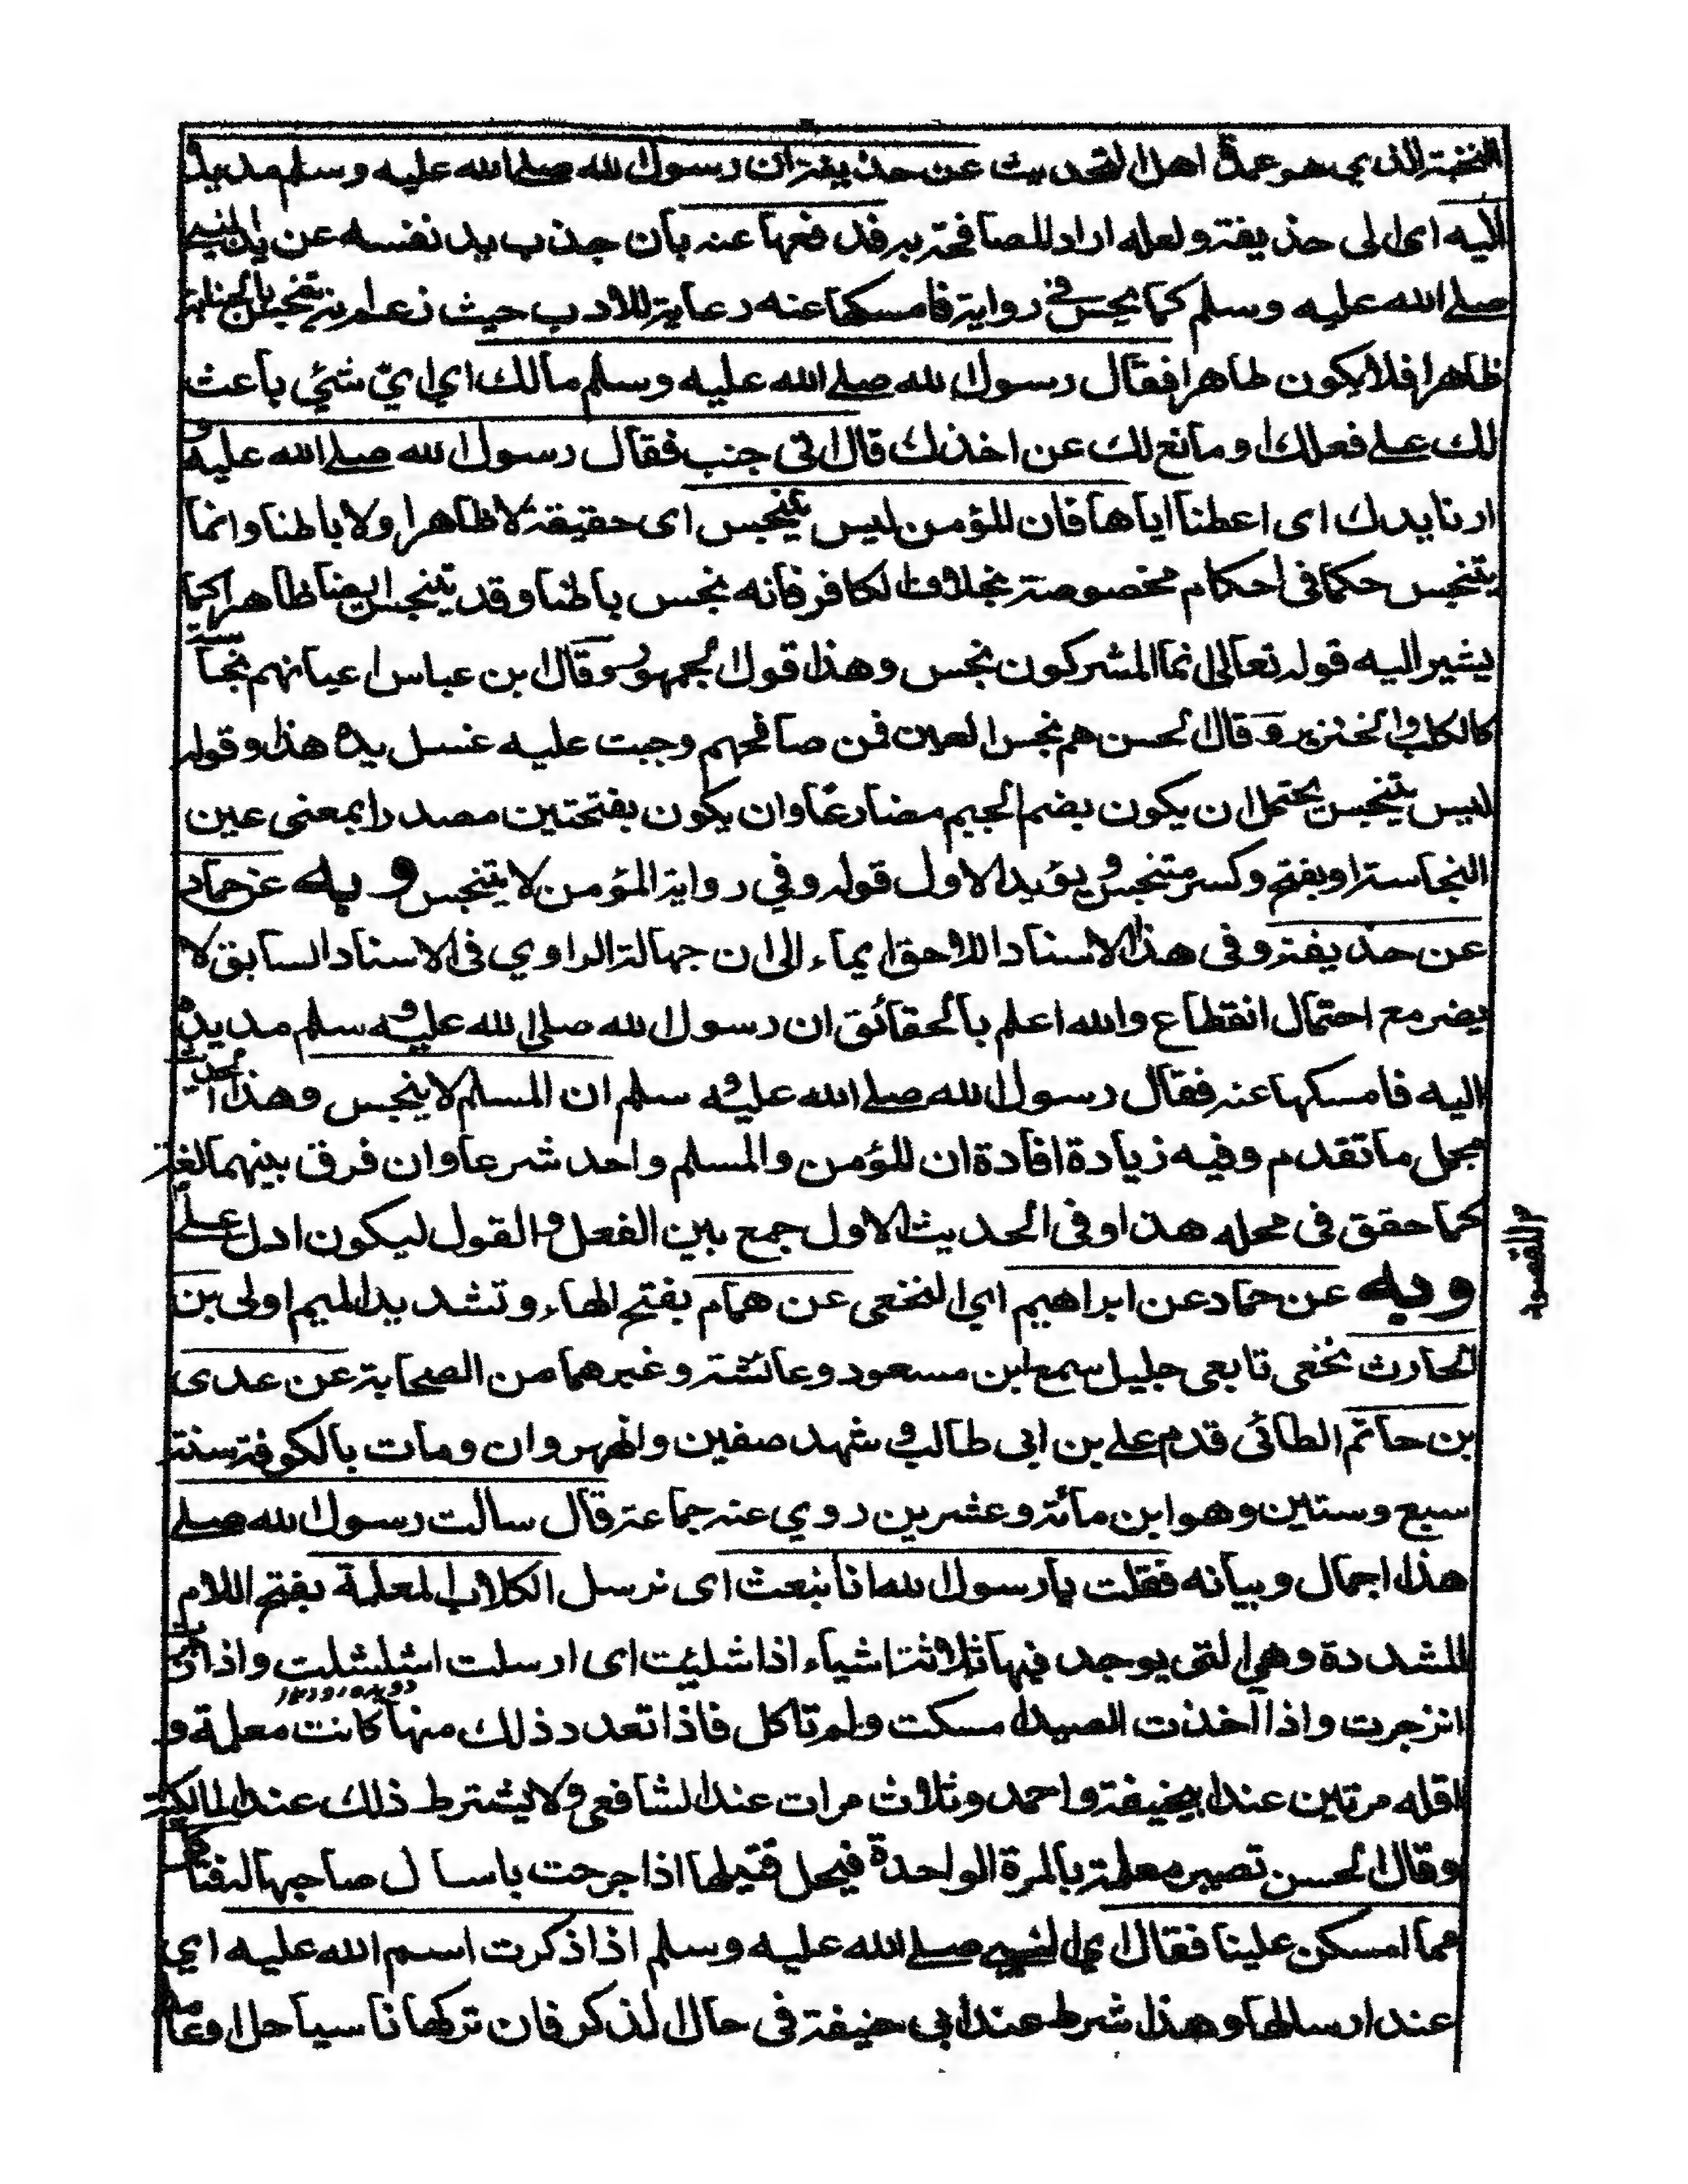 النخبة الذي هو عمدة اهل التحديث عن حذيفة ان رسول الله صلى الله عليه وسلم مد يده
اليه اى الى حذيفة ولعله اراد المصافحة به فدفعها عنه بان جذب يد نفسه عن يد النبي
صلى الله عليه وسلم كما يحس في رواية فامسكها عنه رعاية للادب حيث زعم انه يتنجس بالجنابة
ظاهرا فلا يكون طاهرا فقال رسول الله صلى الله عليه وسلم مالك اي اي شئي باعث
لك على فعلك او مانع لك عن اخذك قال انى جنب فقال رسول الله صلى الله عليه و
ارنا يدك اى اعطنا اياها فان المؤمن ليس ينجس اى حقيقة لا ظاهرا ولا باطنا وانما
يتنجس حكما فى احكام مخصوصة بخلاف الكافر فانه نجس باطنا وقد يتنجس ايضا ظاهرا كما
يشير اليه قوله تعالى انما المشركون نجس وهذا قول الجمهور وقال ابن عباس اعيانهم نجسة
كالكلب والخنزير وقال الحسن هم نجس العين فمن صافحهم وجبت عليه غسل يده هذا وقوله
ليس ينجس يحتمل ان يكون بضم الجيم مضارعا وان يكون بفتحتين مصدرا بمعنى عين
النجاسة او بفتح وكسر متنجس ويؤيد الاول قوله وفي رواية المؤمن لا ينجس وبه عن حماد
عن حذيفة وفى هذا الاسناد اللاحق ايماء الى ان جهالة الراوي فى الاسناد السابق لا
يضر مع احتمال انقطاع والله اعلم بالحقائق ان رسول الله صلى الله عليه وسلم مد يده
اليه فامسكها عنه فقال رسول الله صلى الله عليه وسلم ان المسلم لا ينجس وهذا الحديث
مجمل ما تقدم وفيه زيادة افادة ان المؤمن والمسلم واحد شرعا وان فرق بينهما لغة
كما حقق فى محله هذا وفى الحديث الاول جمع بين الفعل والقول ليكون ادل على
المقصود
وبه عن حماد عن ابراهيم اي النخعى عن همام بفتح الهاء وتشديد الميم اولى بن
الحارث نخعى تابعى جليل سمع ابن مسعود وعائشة وغيرهما من الصحابة عن عدى
بن حاتم الطائى قدم على بن ابى طالب وشهد صفين والنهروان ومات بالكوفة سنة
سبع وستين وهو ابن مائة وعشرين روي عنه جماعة قال سالت رسول الله صلى
هذا اجمال وبيانه فقلت يا رسول الله انا نبعث اى نرسل الكلاب المعلمة بفتح اللام
المشددة وهي التى يوجد فيها ثلاثة اشياء اذا شليت اى ارسلت استشلت واذا زجرت
انزجرت واذا اخذت الصيد امسكت ولم تاكل فاذا تعدد ذلك منها كانت معلمة و
اقله مرتين عند ابي حنيفة واحمد وثلاث مرات عند الشافعى ولا يشترط ذلك عند المالكية
وقال الحسن تصير معلمة بالمرة الواحدة فيحل قتيلها اذا جرحت بارسال صاحبها
مما امسكن علينا فقال اي النبي صلى الله عليه وسلم اذا ذكرت اسم الله عليه اي
عند ارسالها وهذا شرط عند ابى حنيفة فى حال الذكر فان تركها ناسيا حل او عامدا